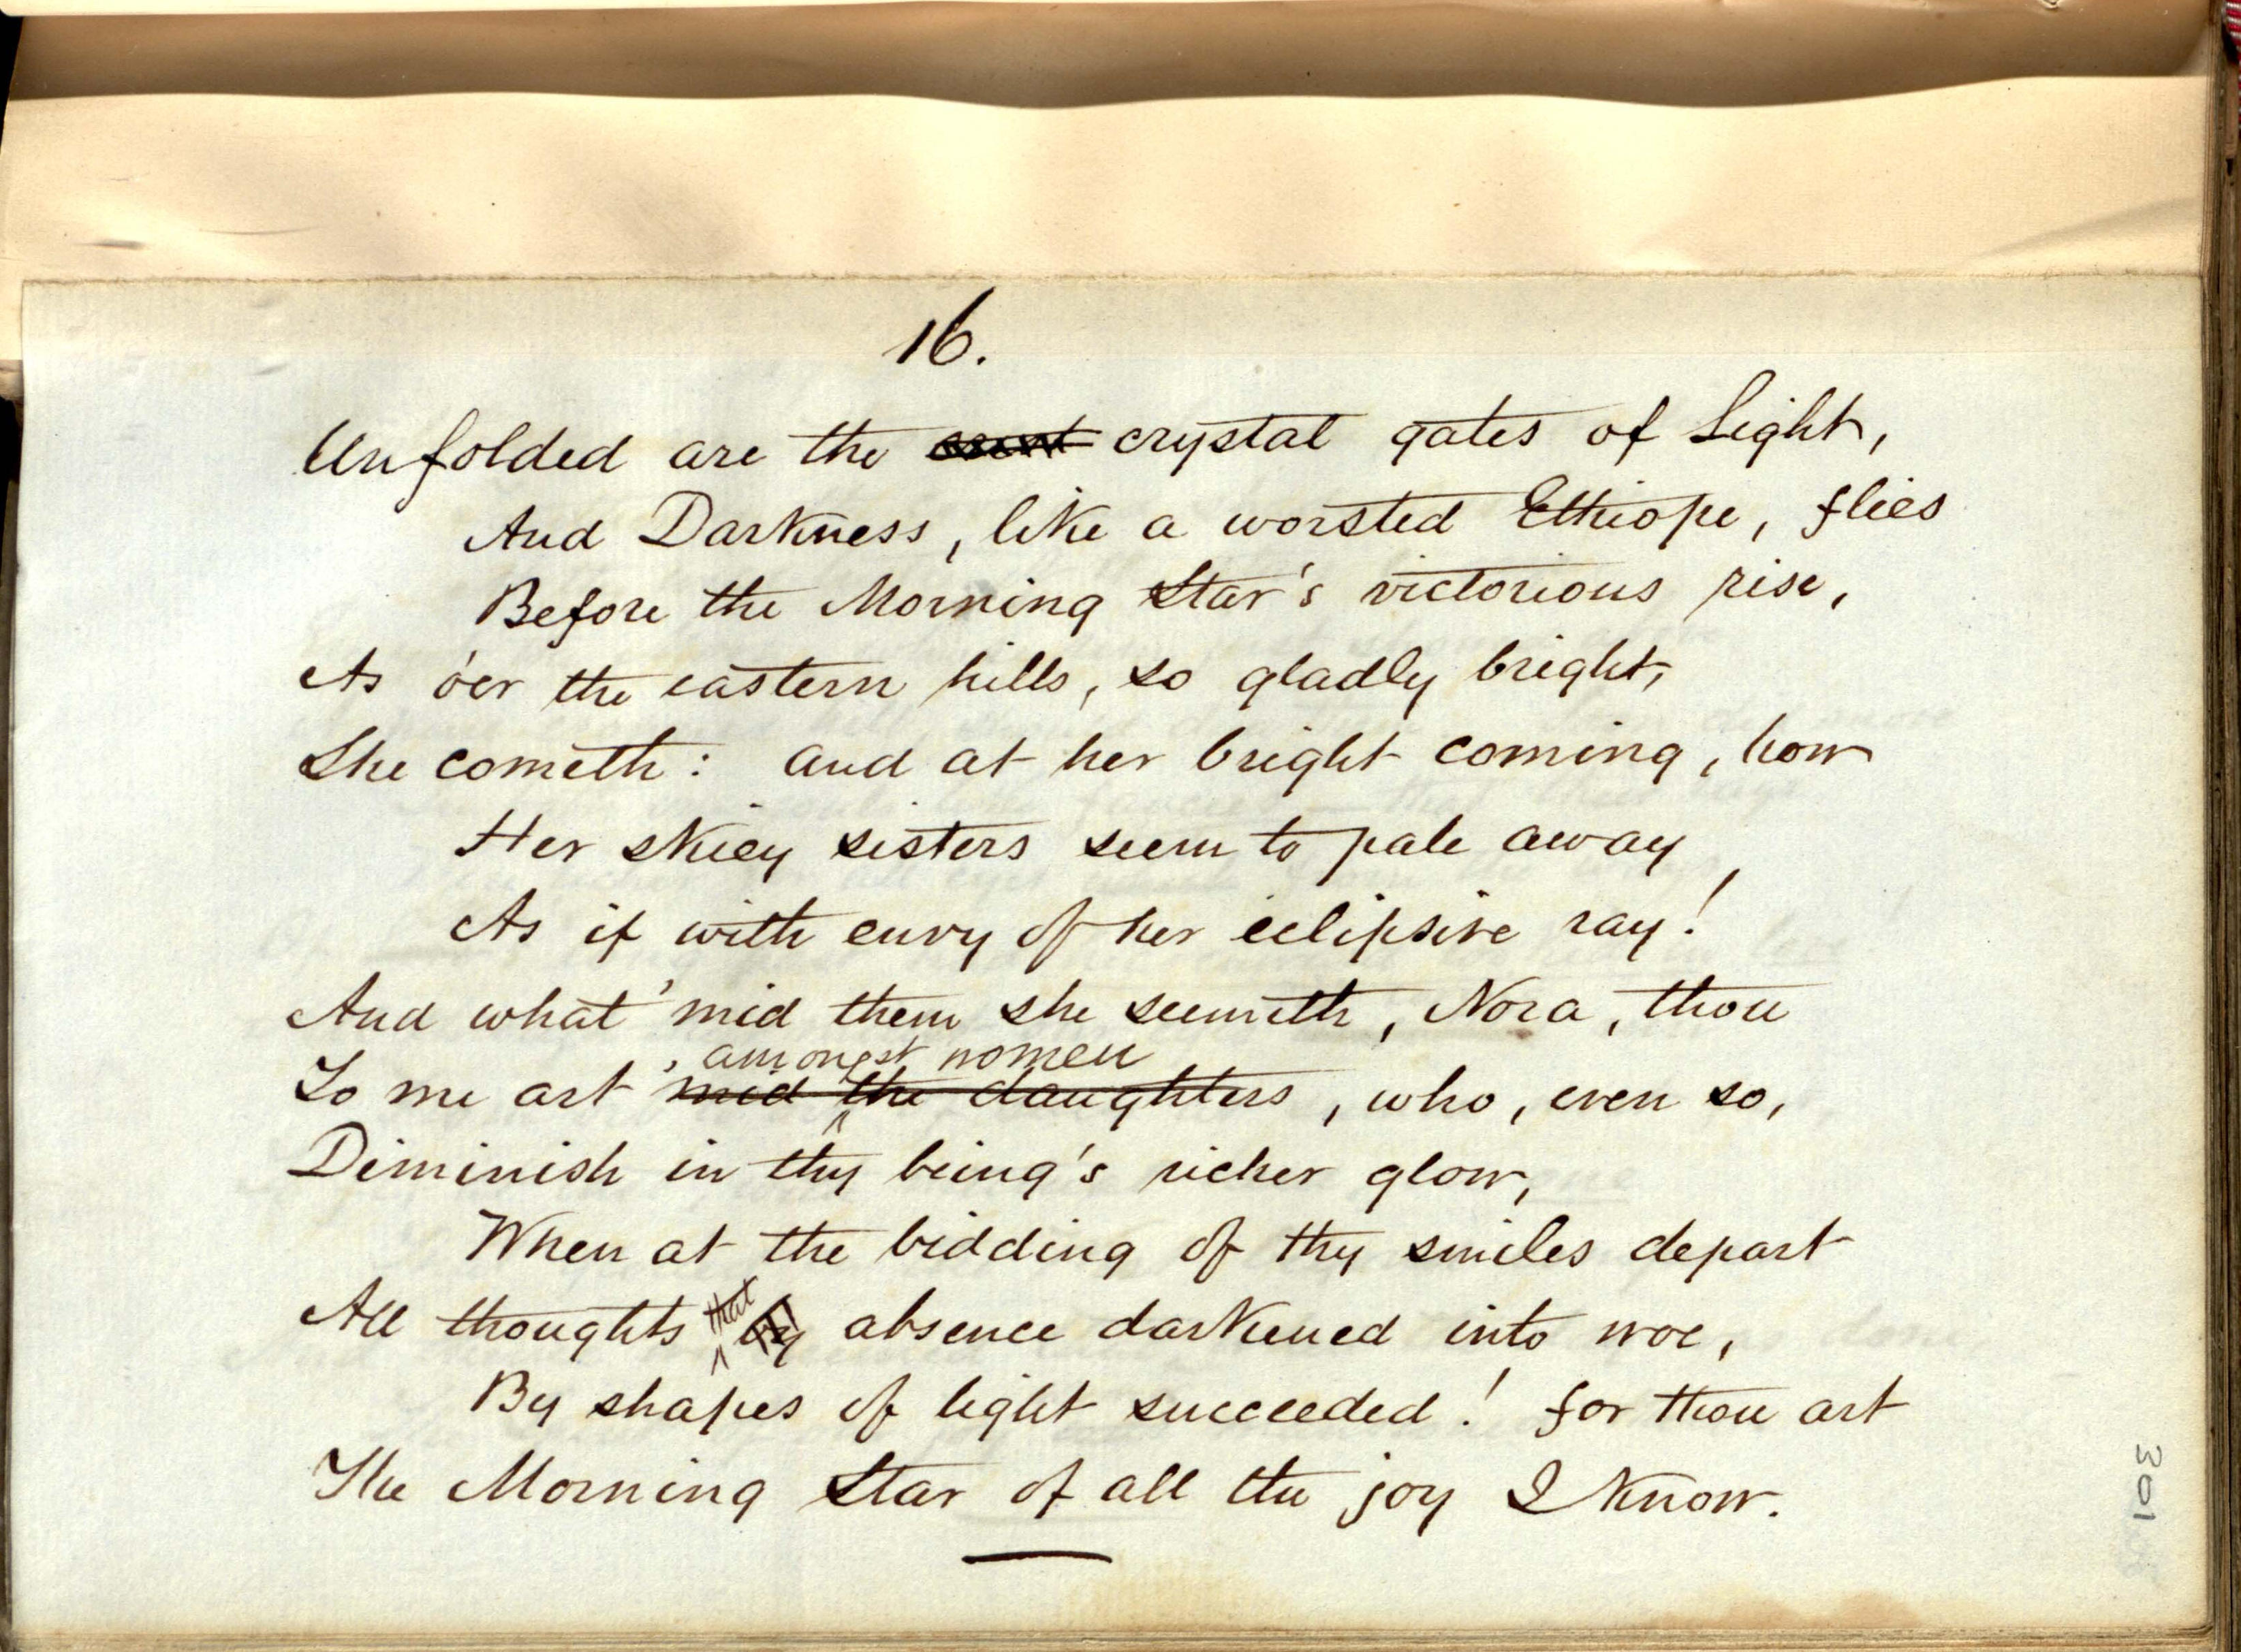 16.
Unfolded are the crystal gates of Light,
And Darkness, like a worsted Ethiope, flies
Before the Morning Star's victorious rise,
As o'er the eastern hills, so gladly bright,
She cometh: and at her bright coming, how
Her skiey sisters seem to pale away,
As if with envy of her eclipsive ray!
And what 'mid them she seemeth, Nora, thou
, amongst women
To me art mid the daughters, who, even so,
Diminish in thy being's richer glow,
When at the bidding of thy smiles depart
that
All thoughts by absence darkened into woe,
By shapes of light succeeded! for thou art
The Morning Star of all the joy I know.
301